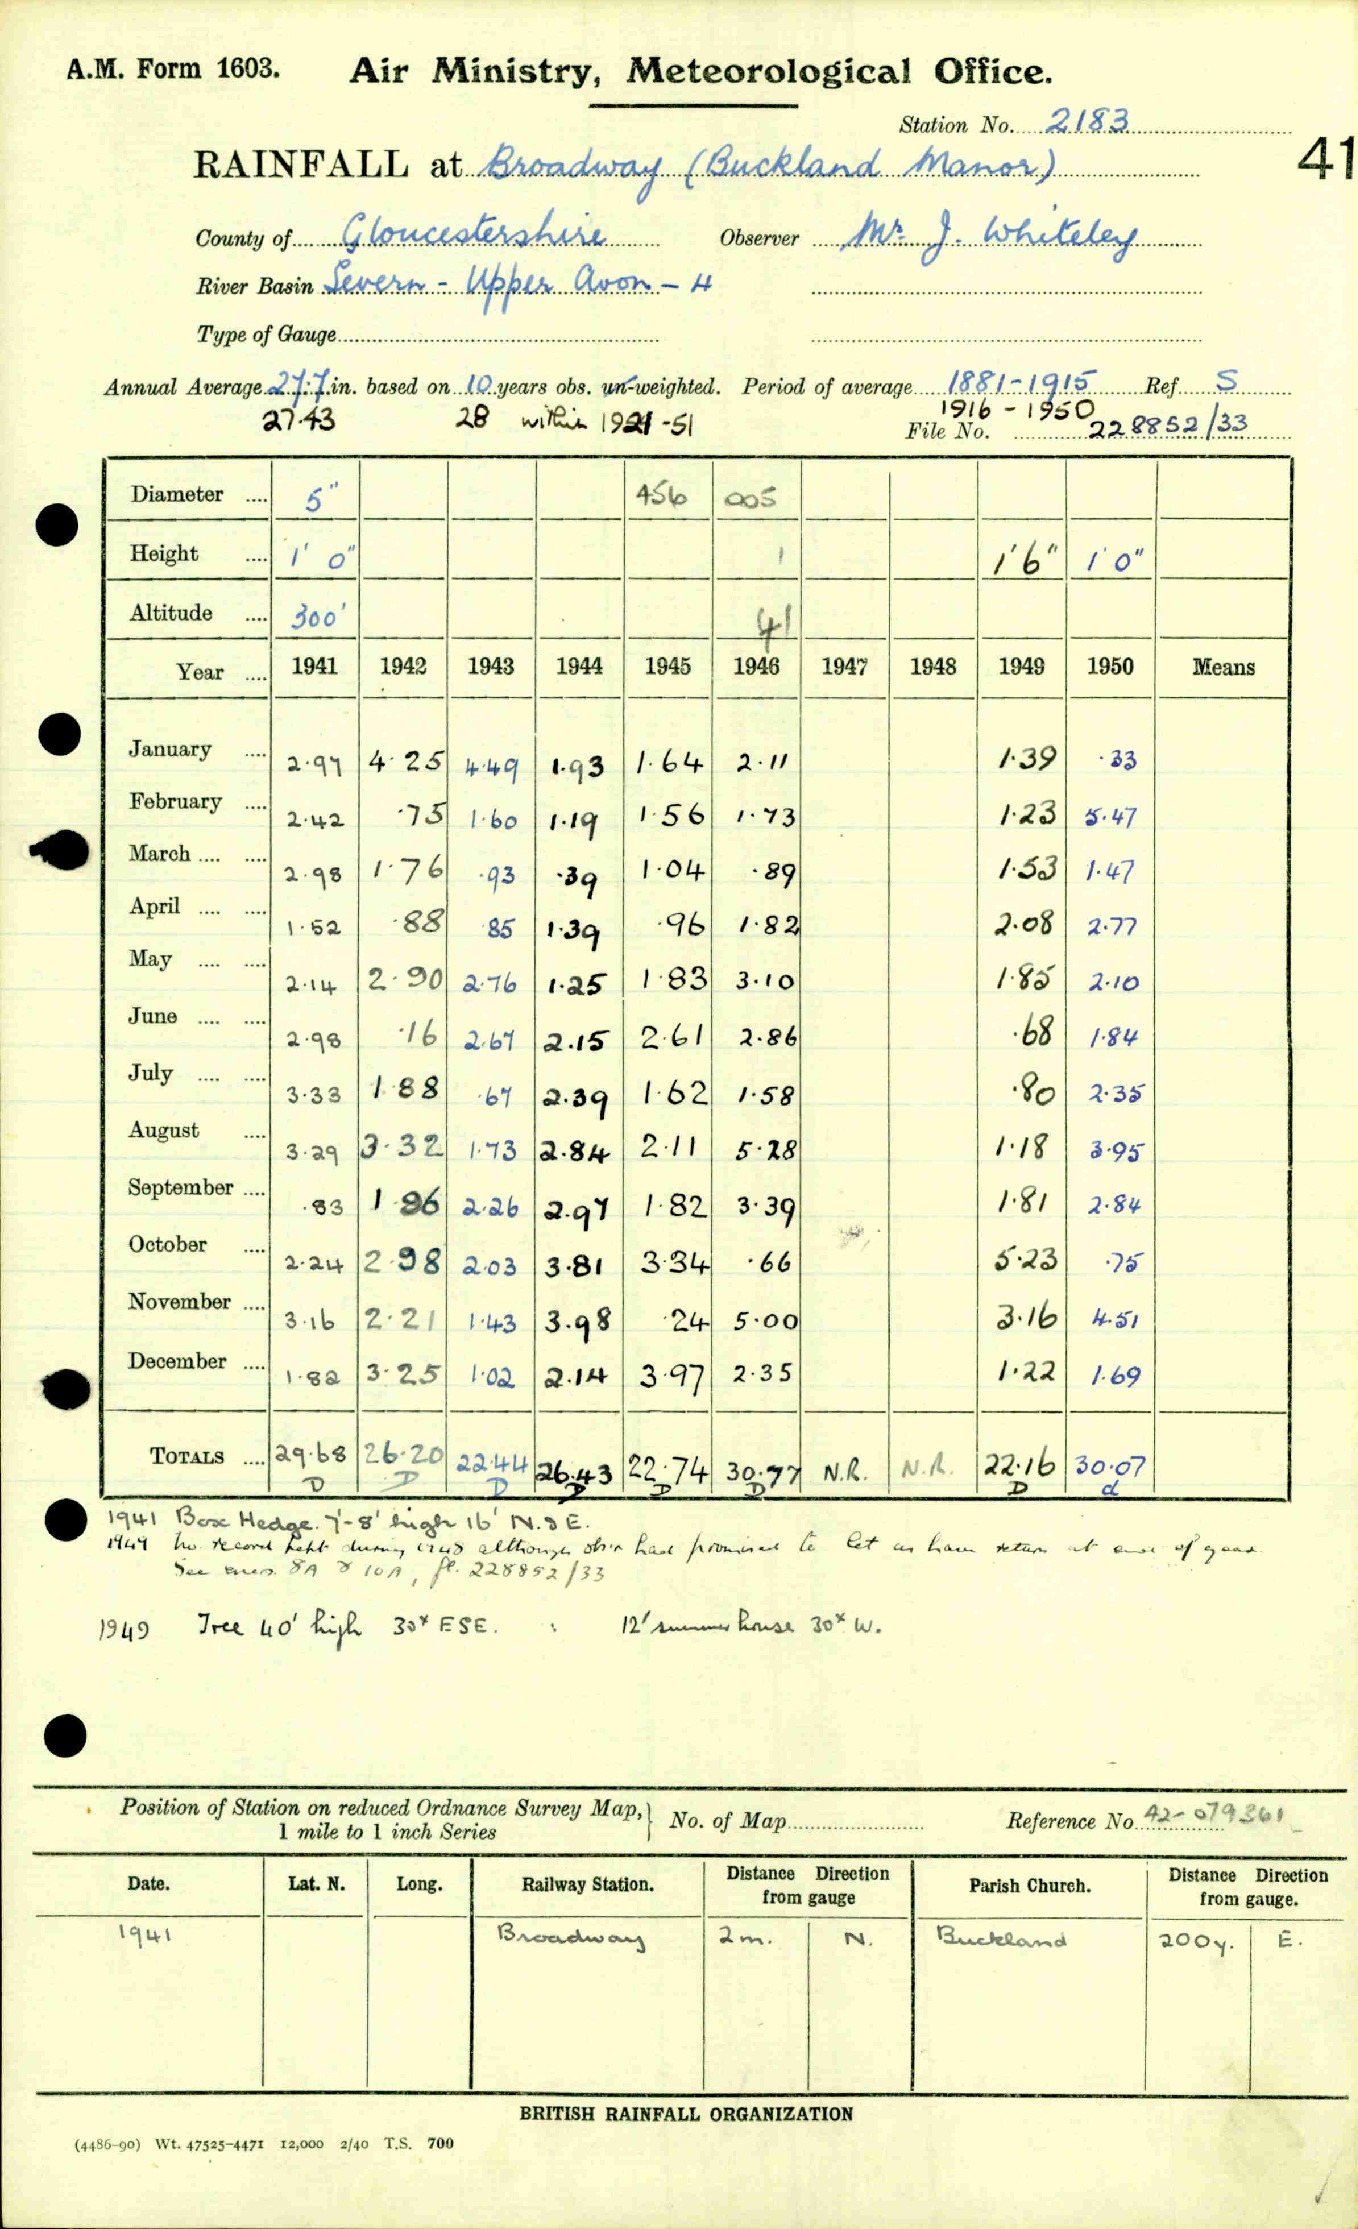 A.M. Form 1603. Air Ministry, Meteorological Office.
Station No. 2183
41
RAINFALL at Broadway (Buckland Manor)
County of Gloucestershire Observer Mr. J. Whiteley
River Basin Severn - Upper Avon - 4
Type of Gauge
Annual Average 27.7 in. based on 10 years obs. un-weighted. Period of average 1881-1915 Ref. S
27.43 28 within 1921-51 1916 - 1950
File No. 228852/33
Diameter .... 5" 456 005
Height .... 1' 0" 1 1'6" 1'0"
Altitude .... 300' 41
Year .... 1941 1942 1943 1944 1945 1946 1947 1948 1949 1950 Means
January .... 2.97 4.25 4.49 1.93 1.64 2.11 1.39 .33
February .... 2.42 .75 1.60 1.19 1.56 1.73 1.23 5.47
March .... .... 2.98 1.76 .93 .39 1.04 .89 1.53 1.47
April .... .... 1.52 .88 .85 1.39 .96 1.82 2.08 2.77
May .... .... 2.14 2.90 2.76 1.25 1.83 3.10 1.85 2.10
June .... .... 2.98 .16 2.67 2.15 2.61 2.86 .68 1.84
July .... .... 3.33 1.88 .67 2.39 1.62 1.58 .80 2.35
August .... 3.29 3.32 1.73 2.84 2.11 5.28 1.18 3.95
September .... .83 1.86 2.26 2.97 1.82 3.39 1.81 2.84
October .... 2.24 2.98 2.03 3.81 3.34 .66 5.23 .75
November .... 3.16 2.21 1.43 3.98 .24 5.00 3.16 4.51
December .... 1.82 3.25 1.02 2.14 3.97 2.35 1.22 1.69
TOTALS .... 29.68 26.20 22.44 26.43 22.74 30.77 N.R. N.R. 22.16 30.07
D D D D D D D d
1941 Box Hedge. 7'-8' high 16' N. & E.
1949 No record kept during 1948 although obsr had promised to let us have return at end of year.
See 8A & 10A, fl. 228852/33
1949 Tree 40' high 30x ESE. : 12' summer house 30x W.
Position of Station on reduced Ordnance Survey Map, 1 mile to 1 inch Series } No. of Map Reference No. 42-079361
Date. Lat. N. Long. Railway Station. Distance Direction from gauge Parish Church. Distance Direction from gauge.
1941 Broadway 2m. N. Buckland 200y. E.
BRITISH RAINFALL ORGANIZATION
(4486-90) Wt. 47525-4471 12,000 2/40 T.S. 700